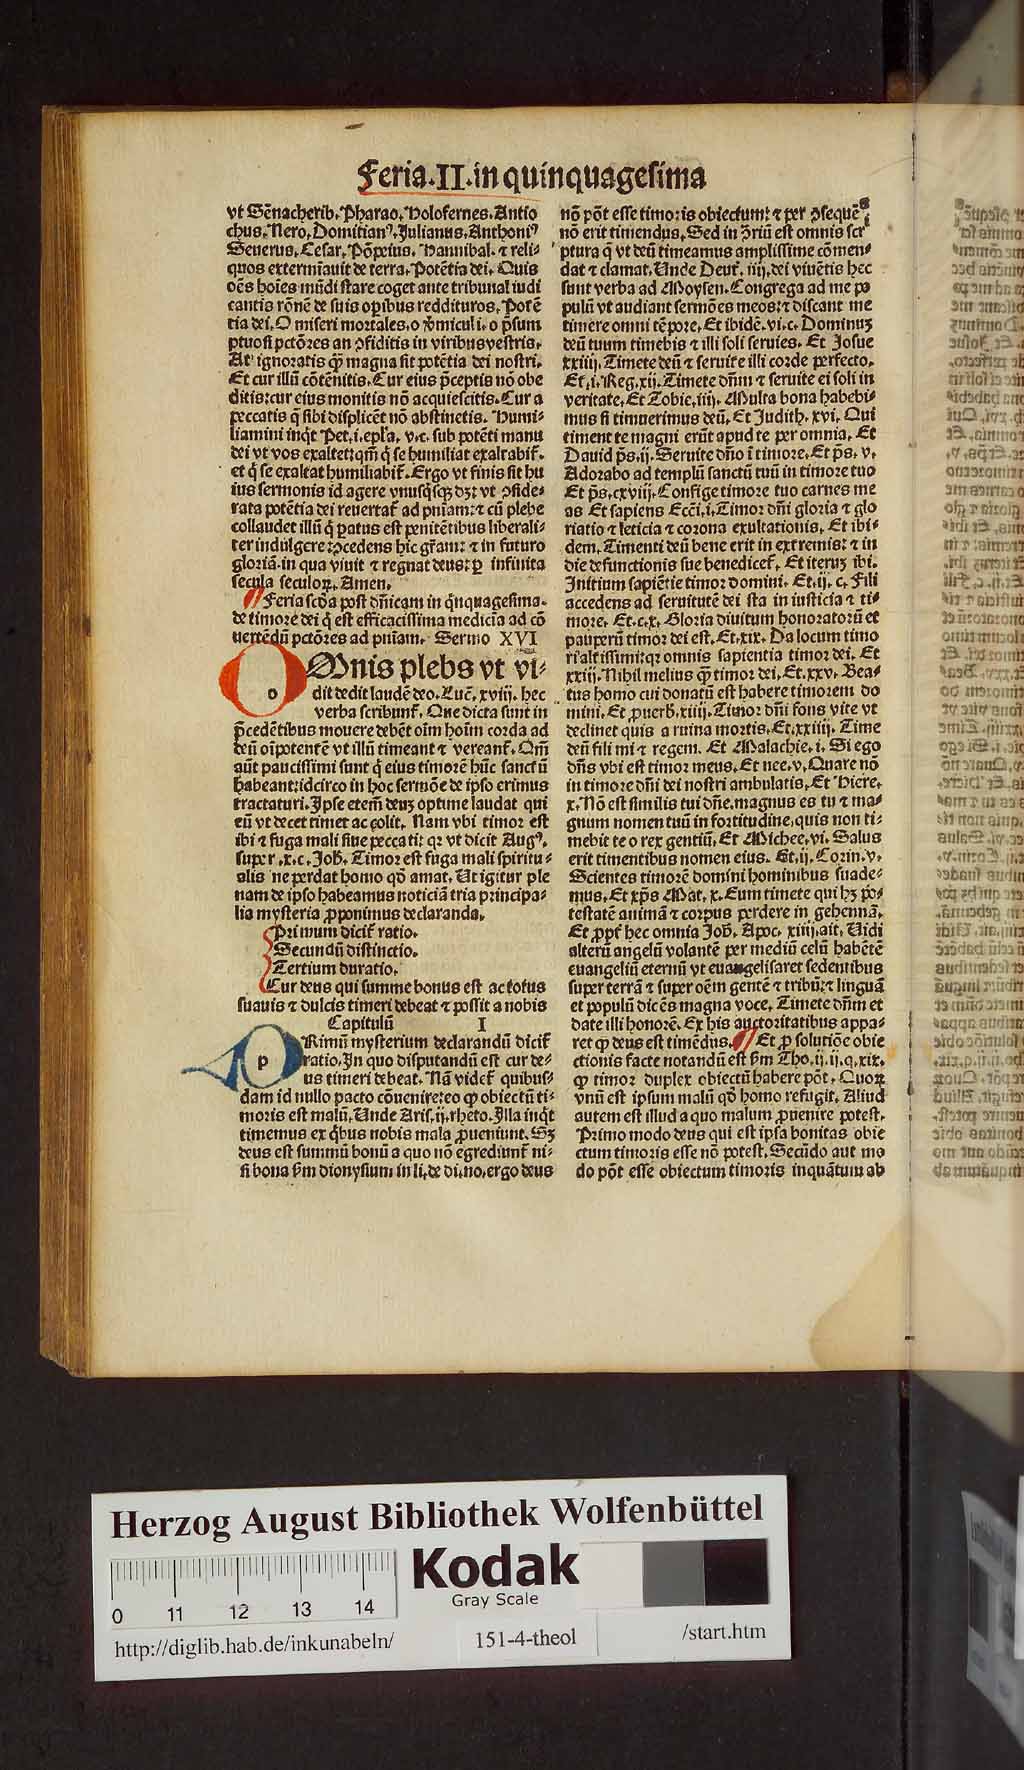 Feria.II.in quinquagesima
vt Sēnacherib. Pharao. Holofernes. Antio
chus. Nero. Domitianꝰ. Julianus. Anthoniꝰ
Seuerus. Cesar. Pōpeius. Hannibal. ⁊ reli-
quos extermīauit de terra. Potētia dei. Quis
oēs hoies mūdi stare coget ante tribunal iudi
cantis rōnē de suis opibus reddituros. Potē
tia dei. O miseri mortales. o homiculi. o p̄sum
ptuosi pctōres an ꝯfiditis in viribus vestris.
At ignoratis ꝙ̄ magna sit potētia dei nostri.
Et cur illū cōtēnitis. Cur eius p̄ceptis nō obe
ditis: cur eius monitis nō acquiescitis. Cur a
peccatis q̄ sibi displicēt nō abstinetis. Humi-
liamini inqt Pet. i. epla. v. c. sub potēti manu
dei vt vos exaltet: qm̄ q̄ se humiliat exaltabit.
et q̄ se exaltat humiliabit. Ergo vt finis sit hu
ius sermonis id agere vnusqsqꝫ dꝫ: vt ꝯside-
rata potētia dei reuertat ad pniam: ⁊ cū plebe
collaudet illū q̄ patus est penitētibus liberali-
ter indulgere: ꝓcedens hic gram: ⁊ in futuro
gloriā. in qua viuit ⁊ regnat deus: ꝑ infinita
secula seculoꝝ. Amen.
Feria scda post dn̄icam in qnquagesima.
de timore dei q̄ est efficacissima medicīa ad cō
uertēdū pctōres ad pniam. Sermo XVI
OMnis plebs vt vi-
dit dedit laudē deo. Luc. xviij. hec
verba scribunt. Que dicta sunt in
p̄cedētibus mouere debēt oīm hoīm corda ad
deū oīpotentē vt illū timeant ⁊ vereant. Qm̄
aūt paucissimi sunt q̄ eius timorē hūc sanctū
habeant: idcirco in hoc sermōe de ipso erimus
tractaturi. Ipse etem̄ deuꝫ optime laudat qui
eū vt decet timet ac colit. Nam vbi timor est
ibi ⁊ fuga mali siue peccati: qr vt dicit Augꝰ.
super. x. c. Joh. Timor est fuga mali spiritu-
alis ne perdat homo qd amat. Ut igitur ple
nam de ipso habeamus noticiā tria principa-
lia mysteria ꝓponimus declaranda.
Primum dicit ratio.
Secundū distinctio.
Tertium duratio.
Cur deus qui summe bonus est ac totus
suauis ⁊ dulcis timeri debeat ⁊ possit a nobis
Capitulū I
PRimū mysterium declarandū dicit
ratio. In quo disputandū est cur de-
us timeri debeat. Nā videt quibus-
dam id nullo pacto cōuenire: eo ꝙ obiectū ti-
moris est malū. Unde Aris. ij. rheto. Illa inqt
timemus ex qbus nobis mala ꝓueniunt. Sꝫ
deus est summū bonū a quo nō egrediunt ni-
si bona sm dionysium in li. de di. no. ergo deus
nō pōt esse timoris obiectum: ⁊ per ꝯsequēs
nō erit timendus. Sed in ꝯriū est omnis scri
ptura q̄ vt deū timeamus amplissime cōmen-
dat ⁊ clamat. Unde Deut. iiij. dei viuētis hec
sunt verba ad Moysen. Congrega ad me po
pulū vt audiant sermōes meos: ⁊ discant me
timere omni tēpore. Et ibidē. vi. c. Dominuꝫ
deū tuum timebis ⁊ illi soli seruies. Et Josue
xxiiij. Timete deū ⁊ seruite illi corde perfecto.
Et. i. Reg. xij. Timete dn̄m ⁊ seruite ei soli in
veritate. Et Tobie. iiij. Multa bona habebi-
mus si timuerimus deū. Et Judith. xvi. Qui
timent te magni erūt apud te per omnia. Et
Dauid ps. ij. Seruite dn̄o ī timore. Et ps. v.
Adorabo ad templū sanctū tuū in timore tuo
Et ps. cxviij. Confige timore tuo carnes me
as Et sapiens Ecci. i. Timor dn̄i gloria ⁊ glo
riatio ⁊ leticia ⁊ corona exultationis. Et ibi-
dem. Timenti deū bene erit in extremis: ⁊ in
die defunctionis sue benedicet. Et iteruꝫ ibi.
Initium sapiētie timor domini. Et. ij. c. Fili
accedens ad seruitutē dei sta in iusticia ⁊ ti-
more. Et. c. x. Gloria diuitum honoratorū et
pauperū timor dei est. Et. xix. Da locum timo
ri altissimi: qr omnis sapientia timor dei. Et
xxiij. Nihil melius ꝙ̄ timor dei. Et. xxv. Bea-
tus homo cui donatū est habere timorem do
mini. Et ꝓuerb. xiiij. Timor dn̄i fons vite vt
declinet quis a ruina mortis. Et. xxiiij. Time
deū fili mi ⁊ regem. Et Malachie. i. Si ego
dn̄s vbi est timor meus. Et nee. v. Quare nō
in timore dn̄i dei nostri ambulatis. Et Hiere.
x. Nō est similis tui dn̄e. magnus es tu ⁊ ma-
gnum nomen tuū in fortitudine. quis non ti-
mebit te o rex gentiū. Et Michee. vi. Salus
erit timentibus nomen eius. Et. ij. Corin. v.
Scientes timorē domini hominibus suade-
mus. Et xps Mat. x. Eum timete qui hꝫ po-
testatē animā ⁊ corpus perdere in gehennā.
Et ꝓpt hec omnia Joh. Apoc. xiiij. ait. Uidi
alterū angelū volantē per mediū celū habētē
euangeliū eternū vt euangelisaret sedentibus
super terrā ⁊ super oēm gentē ⁊ tribū: ⁊ linguā
et populū dicēs magna voce. Timete dn̄m et
date illi honorē. Ex his auctoritatibus appa-
ret ꝙ deus est timēdus. Et ꝓ solutiōe obie
ctionis facte notandū est sm Tho. ij. ij. q. xix.
ꝙ timor duplex obiectū habere pōt. Quoꝝ
vnū est ipsum malū qd homo refugit. Aliud
autem est illud a quo malum ꝓuenire potest.
Primo modo deus qui est ipsa bonitas obie
ctum timoris esse nō potest. Secūdo aut mo
do pōt esse obiectum timoris inquātum ab
Herzog August Bibliothek Wolfenbüttel
Kodak
Gray Scale
0 11 12 13 14
http://diglib.hab.de/inkunabeln/
151-4-theol
/start.htm